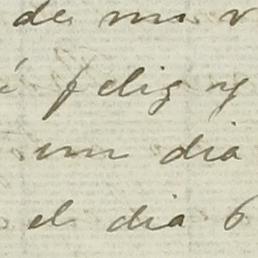 de mi v
feliz y
un dia
el dia 6